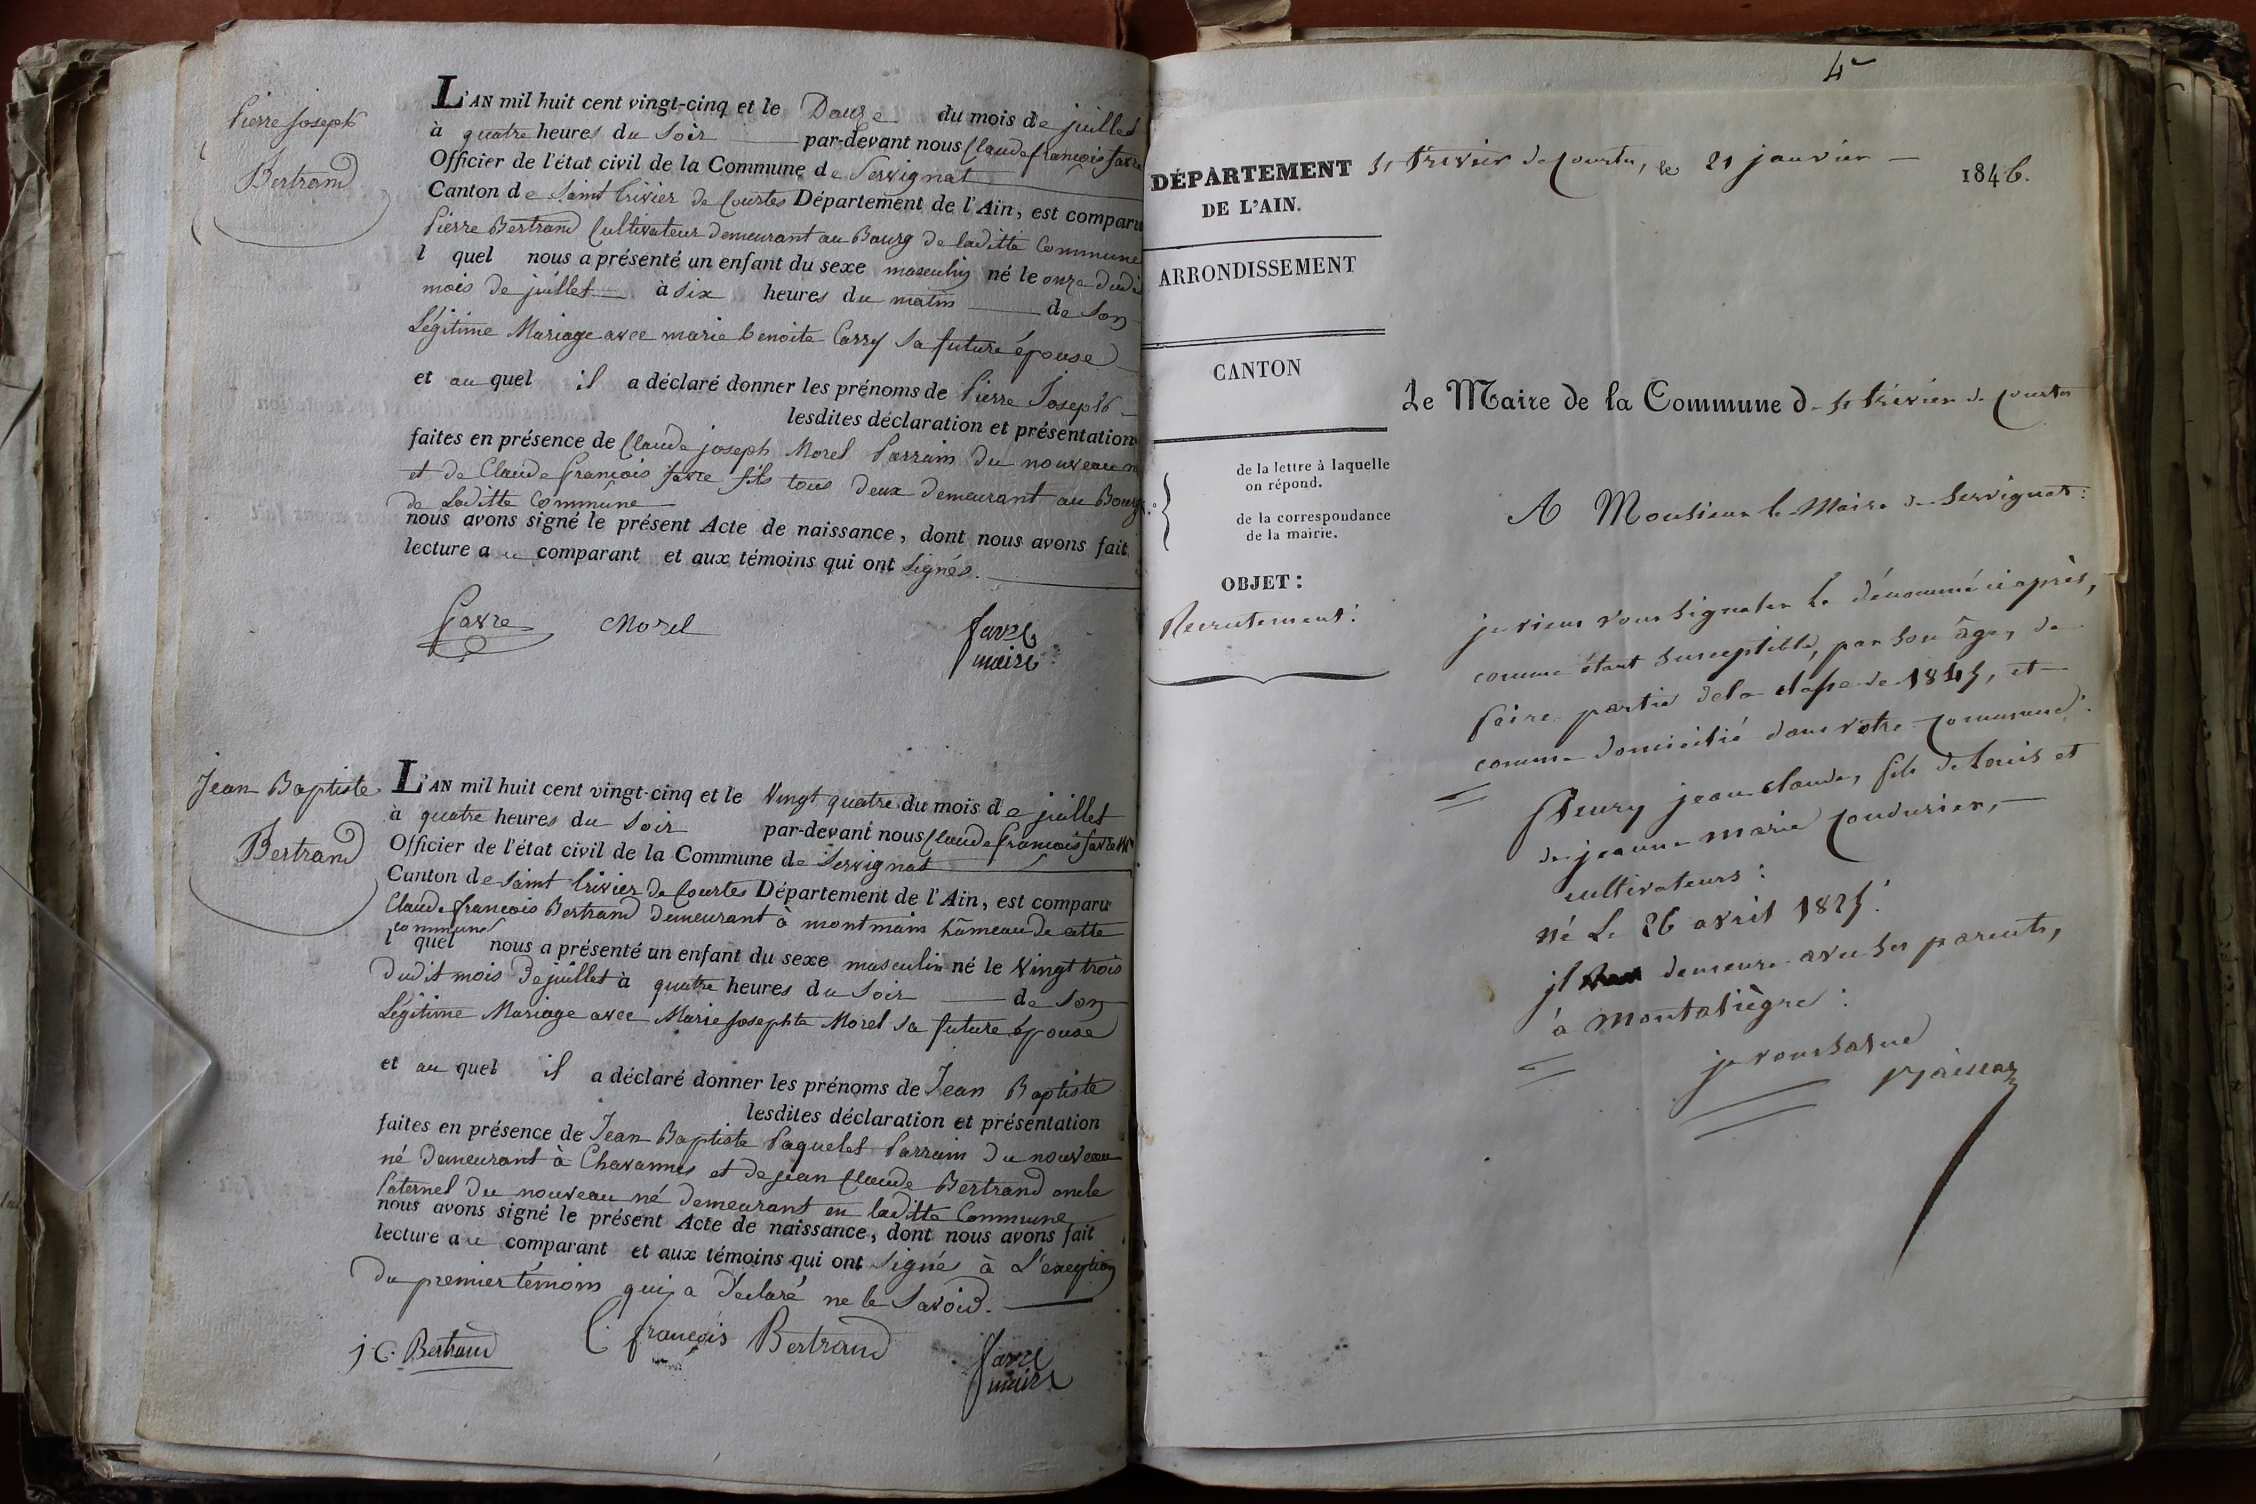 Pierre Joseph
Bertrand
L'AN mil huit cent vingt-cinq et le Douze du mois de juillet
à quatre heures du Soir par-devant nous Claude françois favre
Officier de l'état civil de la Commune de Servignat
Canton de Saint Trivier de Courtes Département de l'Ain, est comparu
Pierre Bertrand Cultivateur demeurant au Bourg de laditte Commune
l quel nous a présenté un enfant du sexe masculin né le onze dudit
mois de juillet à six heures du matin de son
Légitime Mariage avec marie benoite Carry sa future épouse
et au quel il a déclaré donner les prénoms de Pierre Joseph
lesdites déclaration et présentation
faites en présence de Claude joseph Morel Parrain du nouveau né
et de Claude françois favre fils tous deux demeurant au Bourg
de Laditte Commune
nous avons signé le présent Acte de naissance, dont nous avons fait
lecture au comparant et aux témoins qui ont signés.
favre Morel favre
maire
Jean Baptiste
Bertrand
L'AN mil huit cent vingt-cinq et le Vingt quatre du mois de juillet
à quatre heures du Soir par-devant nous Claude françois favre
Officier de l'état civil de la Commune de Servignat
Canton de Saint Trivier de Courtes Département de l'Ain, est comparu
Claude françois Bertrand demeurant à montmain hâmeau de cette
commune
l quel nous a présenté un enfant du sexe masculin né le Vingt trois
dudit mois de juillet à quatre heures du Soir de son
Légitime Mariage avec Marie Josephte Morel sa future épouse
et au quel il a déclaré donner les prénoms de Jean Baptiste
lesdites déclaration et présentation
faites en présence de Jean Baptiste Paquelet Parrain du nouveau
né demeurant à Chavannes et de jean Claude Bertrand oncle
Paternel du nouveau né demeurant en laditte Commune
nous avons signé le présent Acte de naissance, dont nous avons fait
lecture au comparant et aux témoins qui ont signés à L'exeption
du premier témoin qui a déclaré ne le Savoir.
j. C. Bertrand C. françois Bertrand favre
maire
4
DÉPARTEMENT
DE L'AIN.
St Trivier de Courtes, le 21 janvier 1846.
ARRONDISSEMENT
CANTON
Le Maire de la Commune d St Trivier de Courtes
de la lettre à laquelle
on répond.
de la correspondance
de la mairie.
OBJET :
Recrutement.
A Monsieur le Maire de Servignat.
je viens vous signaler le dénommé ci après,
comme étant susceptible, par son âge, de
faire partie de la classe de 1845, et
comme domicilié dans votre Commune.
fleury jean claude, fils de Louis et
de jeanne marie Condurier,
cultivateurs :
né le 26 avril 1825.
jl demeure avec ses parents,
à Montaliègre :
je vous salue